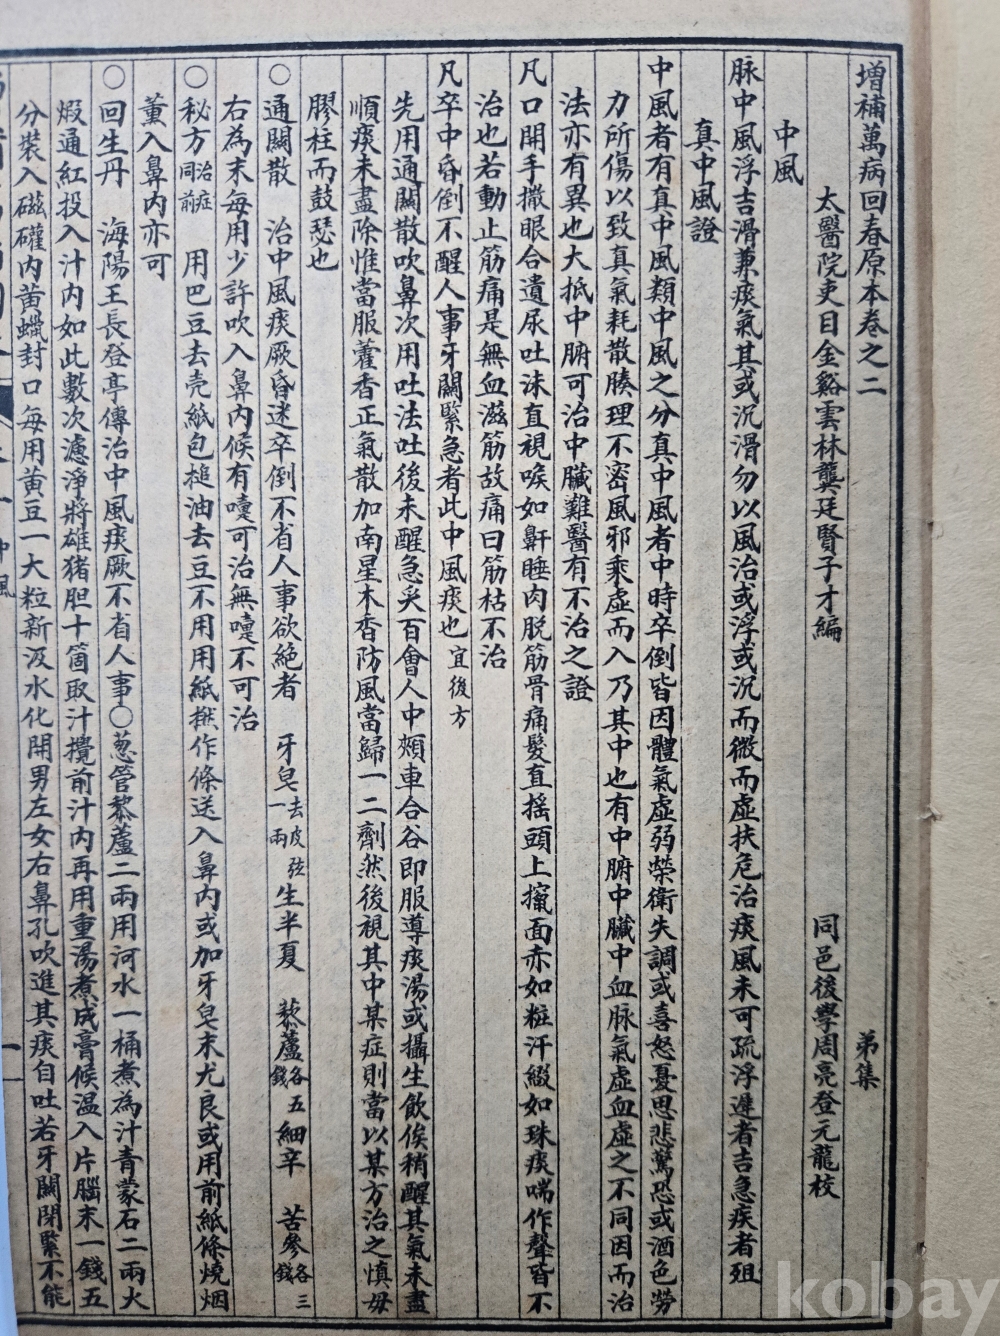 增補萬病回春原本卷之二　弟集
太醫院吏目金谿雲林龔廷賢子才編　同邑後學周亮登元龍校
中風
脉中風浮吉滑兼痰氣其或沉滑勿以風治或浮或沉而微而虛扶危治痰風未可疏浮遲者吉急疾者殂
真中風證
中風者有真中風類中風之分真中風者中時卒倒皆因體氣虛弱榮衛失調或喜怒憂思悲驚恐或酒色勞
力所傷以致真氣耗散腠理不密風邪乘虛而入乃其中也有中腑中臟中血脉氣虛血虛之不同因而治
法亦有異也大抵中腑可治中臟難醫有不治之證
凡口開手撒眼合遺尿吐沫直視喉如鼾睡肉脱筋骨痛髮直搖頭上攛面赤如粧汗綴如珠痰喘作聲皆不
治也若動止筋痛是無血滋筋故痛曰筋枯不治
凡卒中昏倒不醒人事牙關緊急者此中風痰也宜後方
先用通關散吹鼻次用吐法吐後未醒急灸百會人中頰車合谷即服導痰湯或攝生飲俟稍醒其氣未盡
順痰未盡除惟當服藿香正氣散加南星木香防風當歸一二劑然後視其中某症則當以某方治之慎毋
膠柱而鼓瑟也
○通關散　治中風痰厥昏迷卒倒不省人事欲絕者　牙皂去皮弦一兩生半夏　藜蘆各五錢細辛　苦參各三錢
右為末每用少許吹入鼻內候有嚏可治無嚏不可治
○秘方治症同前　用巴豆去壳紙包槌油去豆不用用紙撚作條送入鼻內或加牙皂末尤良或用前紙條燒烟
薰入鼻內亦可
○回生丹　海陽王長登亭傳治中風痰厥不省人事○葱管藜蘆二兩用河水一桶煮為汁青蒙石二兩火
煅通紅投入汁內如此數次濾淨將雄猪胆十箇取汁攪前汁內再用重湯煮成膏候温入片腦末一錢五
分裝入磁礶內黃蠟封口每用黃豆一大粒新汲水化開男左女右鼻孔吹進其痰自吐若牙關閉緊不能
中風
一
kobay